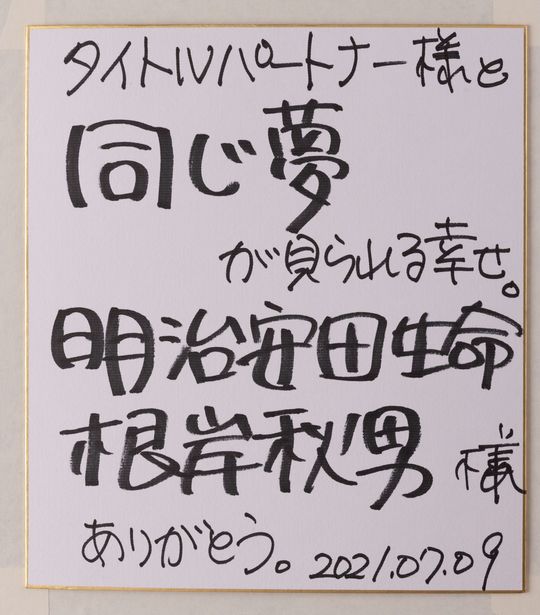 タイトルパートナー様と
同じ夢
が見られる幸せ。
明治安田生命
根岸秋男 様
ありがとう。2021.07.09